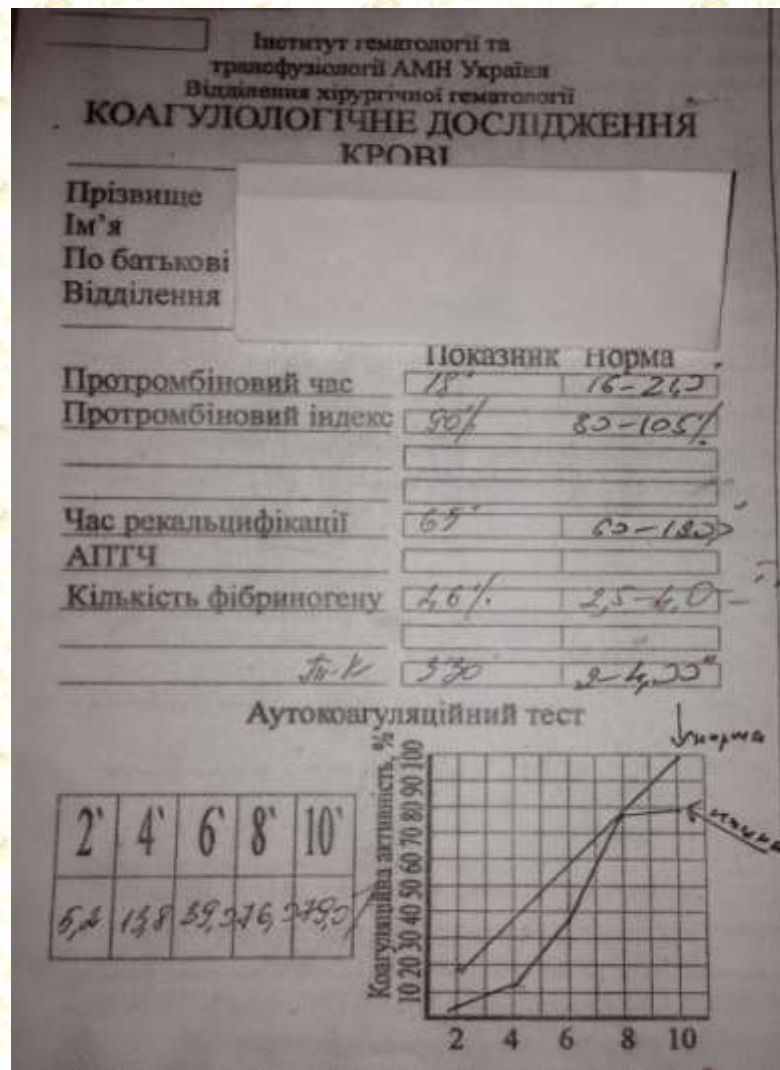 Інститут гематології та
трансфузіології АМН України
Відділення хірургічної гематології
КОАГУЛОЛОГІЧНЕ ДОСЛІДЖЕННЯ
КРОВІ
Прізвище
Ім’я
По батькові
Відділення
Показник Норма
Протромбіновий час 18" 16-24,0
Протромбіновий індекс 90% 80-105%
Час рекальцифікації 60-120
АПТЧ
Кількість фібриногену 2,5-4,0
Аутокоагуляційний тест
норма
Коагуляційна активність, %
10 20 30 40 50 60 70 80 90 100
2` 4` 6` 8` 10`
5,2 13,8 39,0 76,0 79,0
2 4 6 8 10